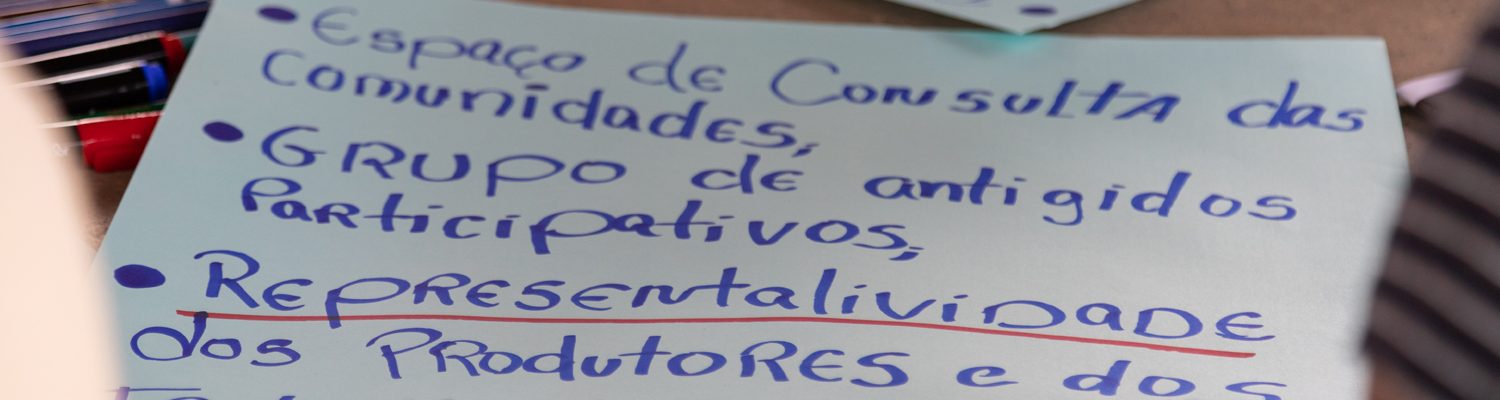 • Espaço de Consulta das
Comunidades;
• GRUPO de antigidos
Participativos;
• REPRESENtalividADE
dos PRodutoRES e dos